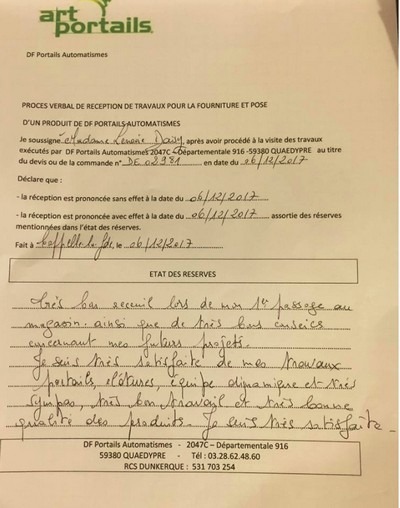 art
portails
DF Portails Automatismes
PROCES VERBAL DE RECEPTION DE TRAVAUX POUR LA FOURNITURE ET POSE
D'UN PRODUIT DE DF PORTAILS AUTOMATISMES
Je soussigné Madame Daisy après avoir procédé à la visite des travaux
exécutés par DF Portails Automatismes 2047C –Départementale 916 -59380 QUAEDYPRE au titre
du devis ou de la commande n° DE 02981 en date du 06/12/2017
Déclare que :
- la réception est prononcée sans effet à la date du 06/12/2017
- la réception est prononcée avec effet à la date du 06/12/2017 assortie des réserves
mentionnées dans l'état des réserves.
Fait à Cappelle la Gde, le 06/12/2017
ETAT DES RESERVES
Très bon acceuil lors de mon 1er passage au
magasin ainsi que de très bons conseils
concernant mes futurs projets.
Je suis très satisfaite de mes travaux
portails, clôtures, équipe dynamique et très
sympas, très bon travail et très bonne
qualité des produits. Je suis très satisfaite.
DF Portails Automatismes - 2047C – Départementale 916
59380 QUAEDYPRE - Tél : 03.28.62.48.60
RCS DUNKERQUE : 531 703 254